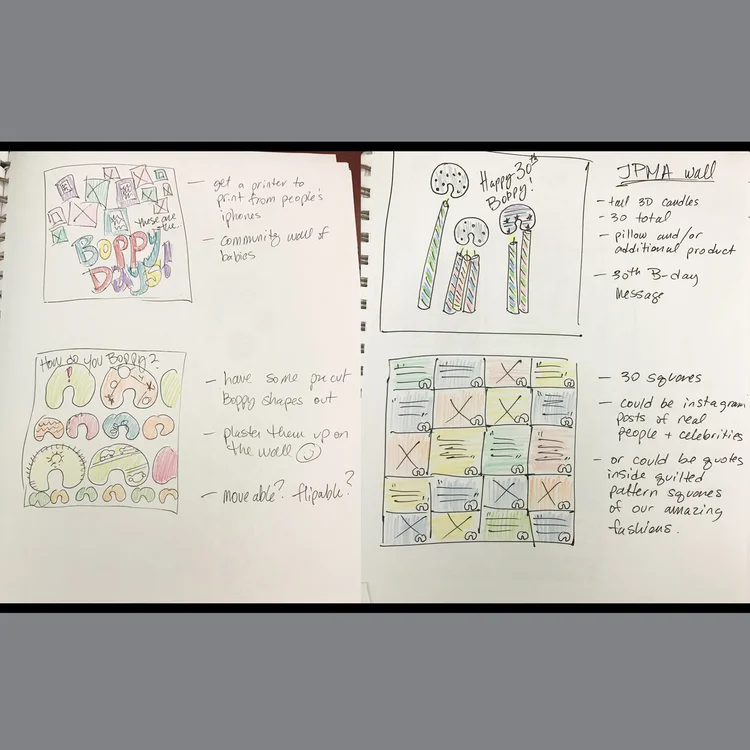 these are
the...
BOPPY
DAYS!
- get a printer to
print from people's
iphones
- community wall of
babies
How do you Boppy?
- have some precut
Boppy shapes out
- plaster them up on
the wall
- moveable? flipable?
Happy 30th
Boppy!
JPMA wall
- tall 3D candles
- 30 total
- pillow and/or
additional product
- 30th B-day
message
- 30 squares
- could be instagram
posts of real
people + celebrities
- or could be quotes
inside quilted
pattern squares
of our amazing
fashions.